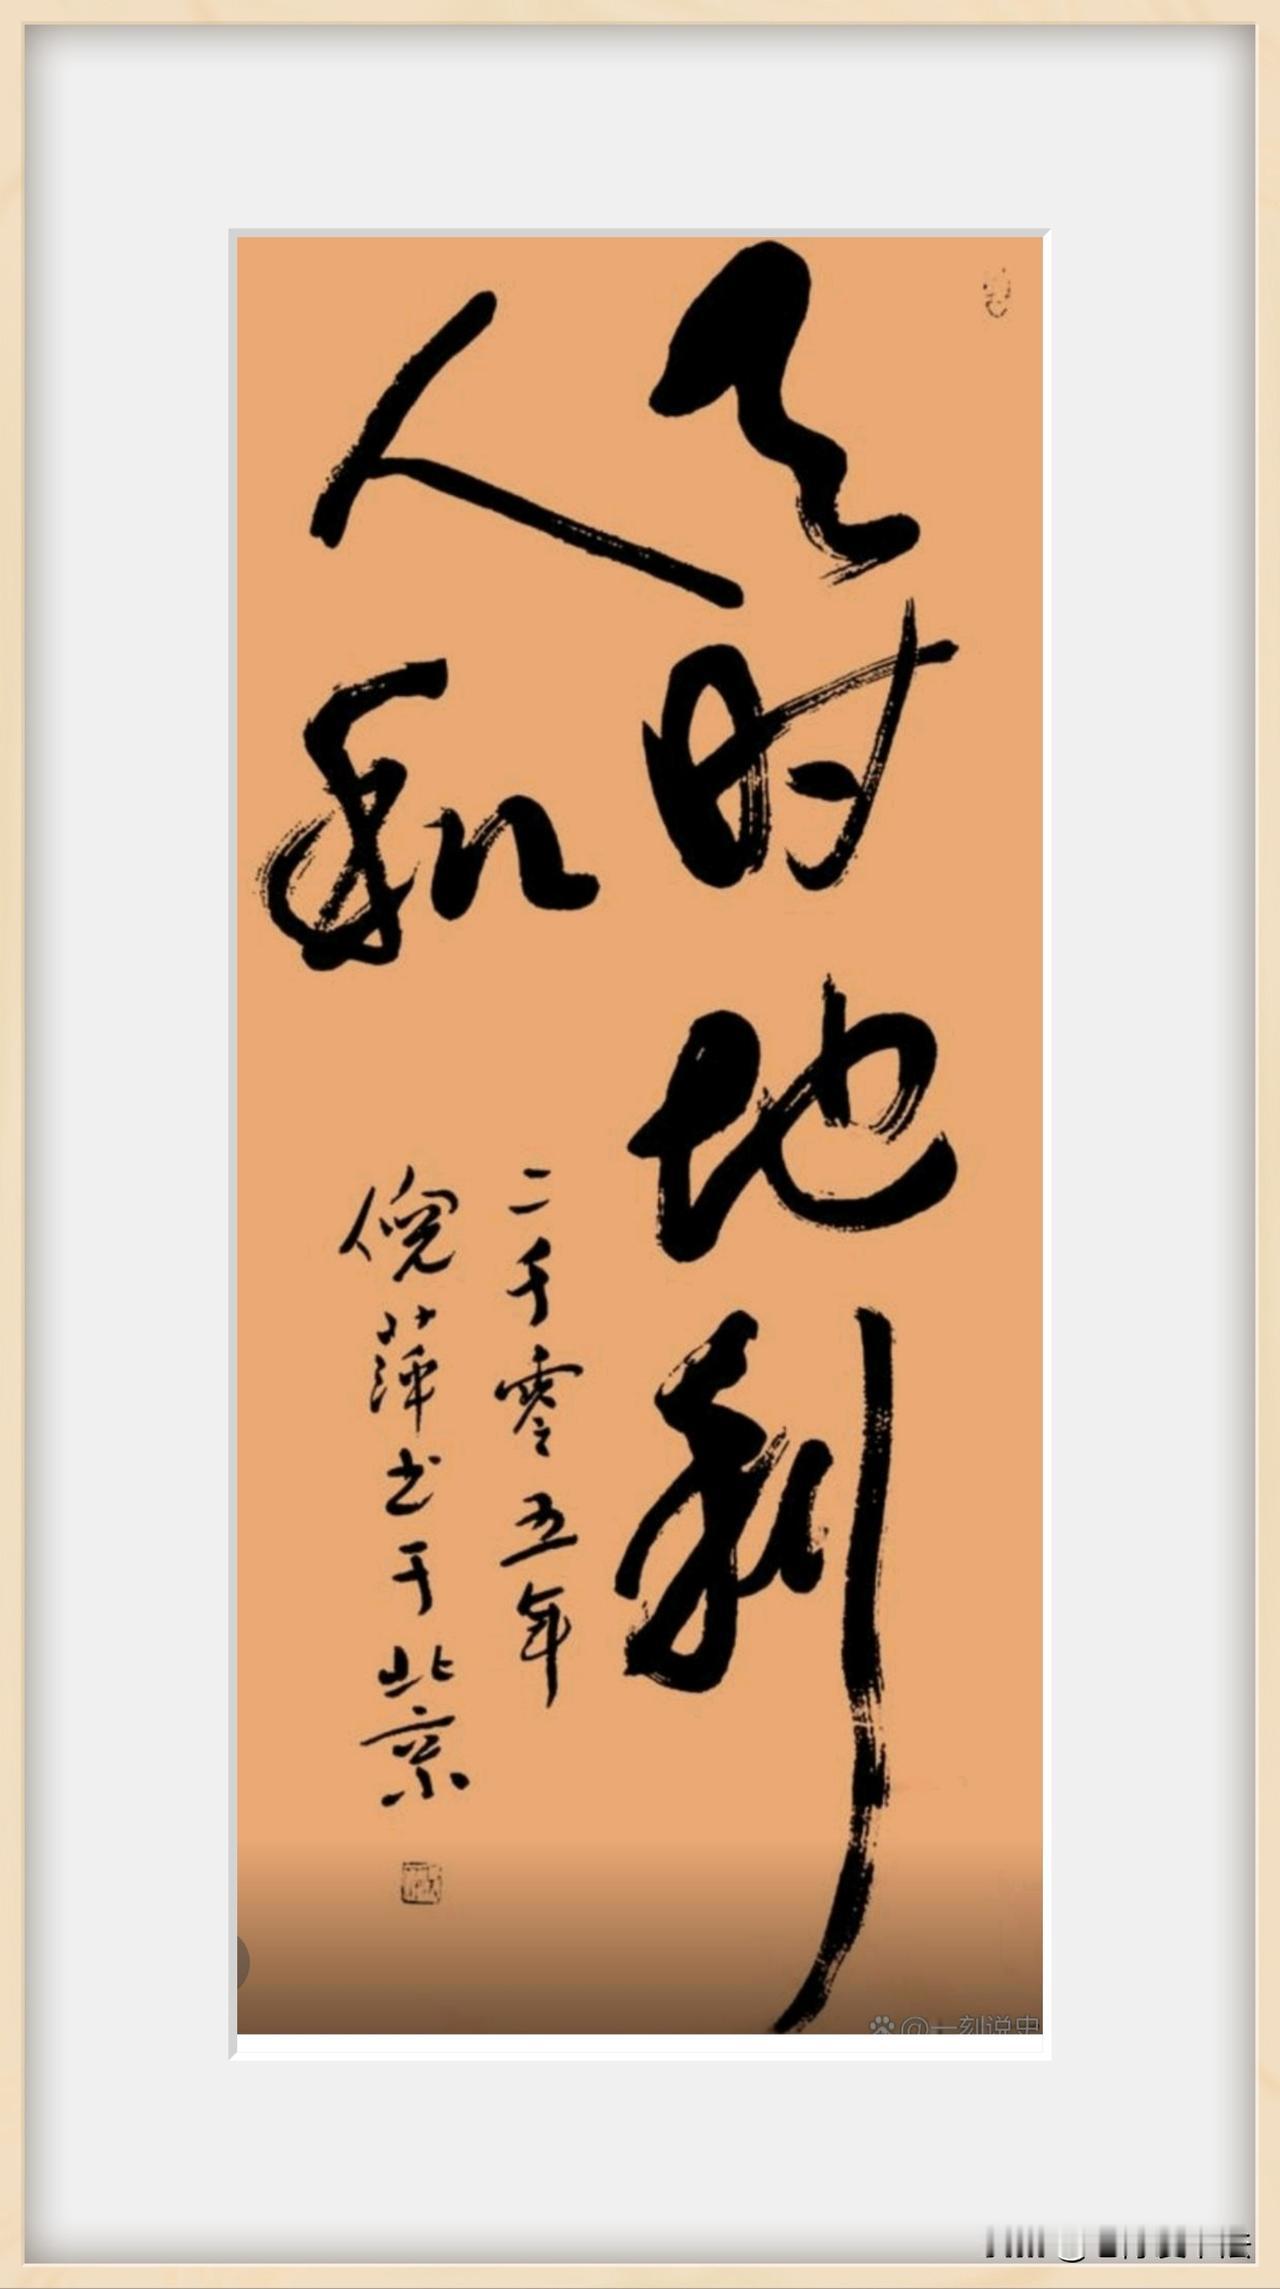 天时地利
人和
二千零五年
倪萍书于北京
@一刻说史